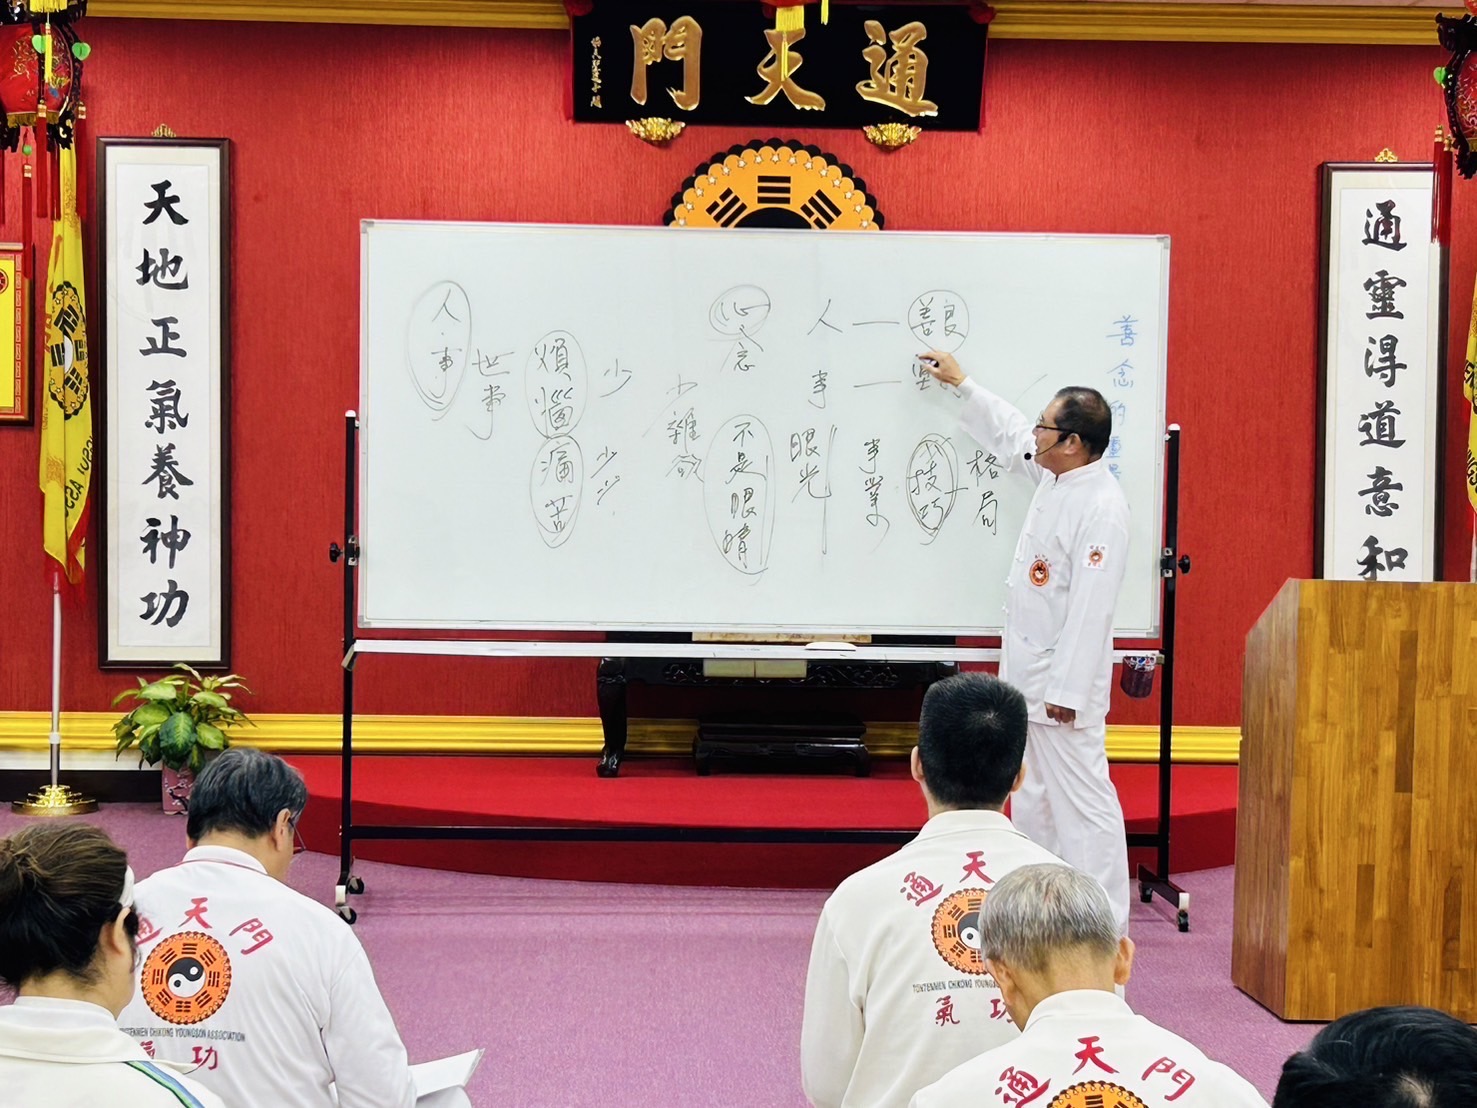 通天門
通靈得道意和
天地正氣養神功
善念的靈
人 — 善良
事 —
格局
技巧
事業
眼光
心念
不是眼睛
少雜欲
少
少少
煩惱
痛苦
世事
人.事
通天門
TONTENMEN CHIKONG YOUNGSON ASSOCIATION
氣功
通天
TONTENMEN CHIKONG YOUNGS
氣功
通天門